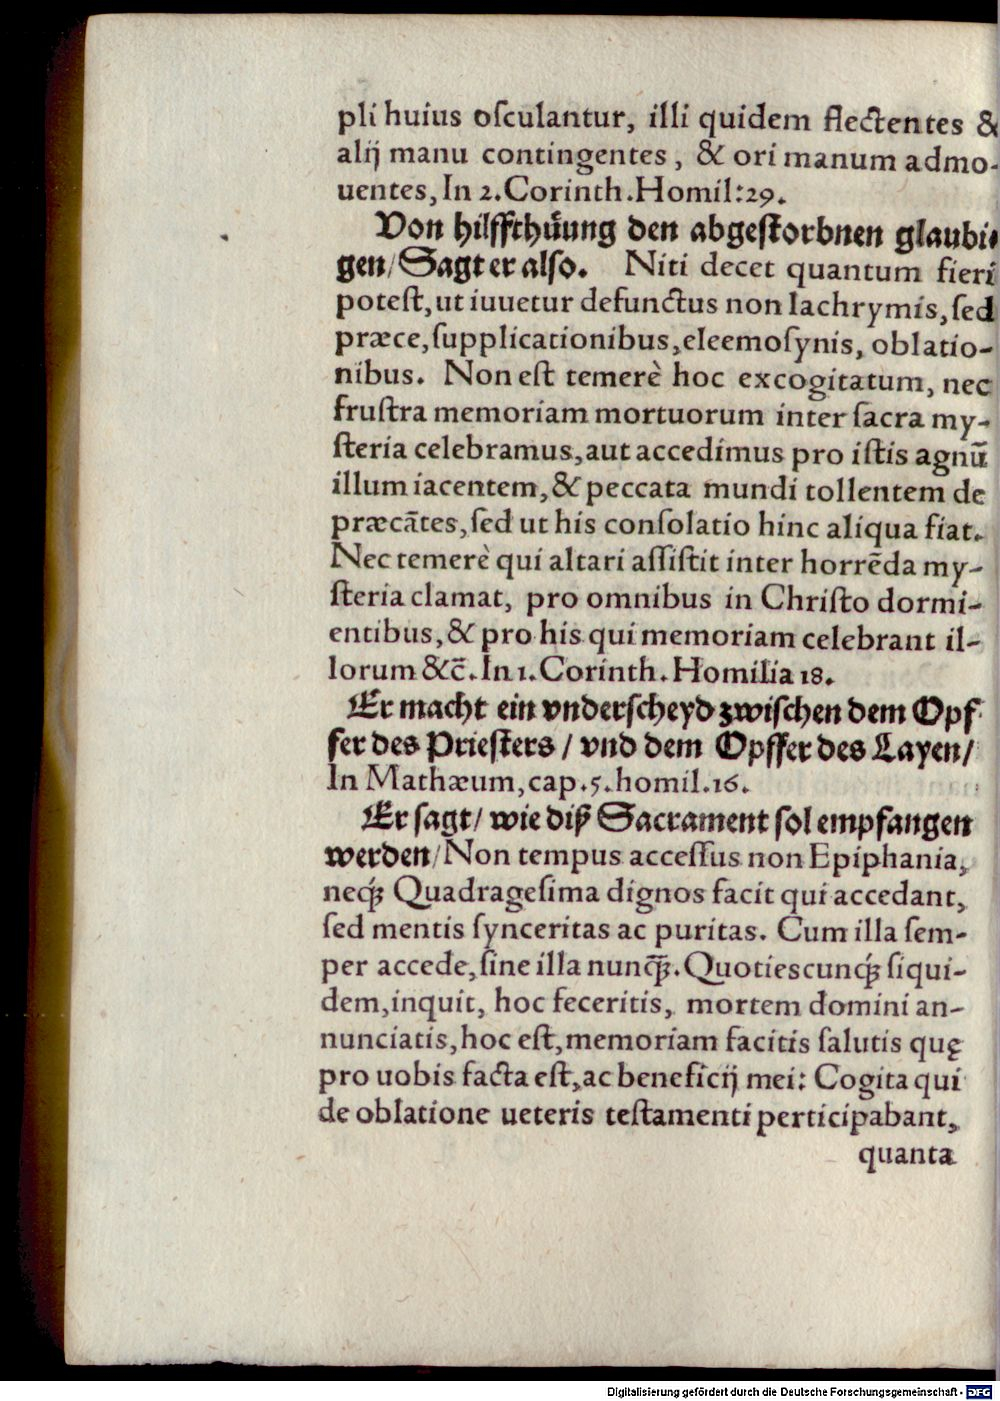 pli huius oſculantur, illi quidem flectentes &
alij manu contingentes, & ori manum admo-
uentes, In 2. Corinth. Homil: 29.
Von hilffthuͤung den abgeſtorbnen glaubi⸗
gen/ Sagt er alſo. Niti decet quantum fieri
poteſt, ut iuuetur defunctus non lachrymis, ſed
præce, ſupplicationibus, eleemoſynis, oblatio-
nibus. Non eſt temerè hoc excogitatum, nec
fruſtra memoriam mortuorum inter ſacra my-
ſteria celebramus, aut accedimus pro iſtis agnū
illum iacentem, & peccata mundi tollentem de
præcātes, ſed ut his conſolatio hinc aliqua fiat.
Nec temerè qui altari aſſiſtit inter horrēda my-
ſteria clamat, pro omnibus in Chriſto dormi-
entibus, & pro his qui memoriam celebrant il-
lorum &c̄. In 1. Corinth. Homilia 18.
Er macht ein vnderſcheyd zwiſchen dem Opf
fer des Prieſters / vnd dem Opffer des Layen/
In Mathæum, cap. 5. homil. 16.
Er ſagt/ wie diß Sacrament ſol empfangen
werden/ Non tempus acceſſus non Epiphania,
neqꝫ Quadrageſima dignos facit qui accedant,
ſed mentis ſynceritas ac puritas. Cum illa ſem-
per accede, ſine illa nunq̄ꝫ. Quotieſcunqꝫ ſiqui-
dem, inquit, hoc feceritis, mortem domini an-
nunciatis, hoc eſt, memoriam facitis ſalutis quę
pro uobis facta eſt, ac beneficij mei: Cogita qui
de oblatione ueteris teſtamenti perticipabant,
quanta
Digitalisierung gefördert durch die Deutsche Forschungsgemeinschaft - DFG